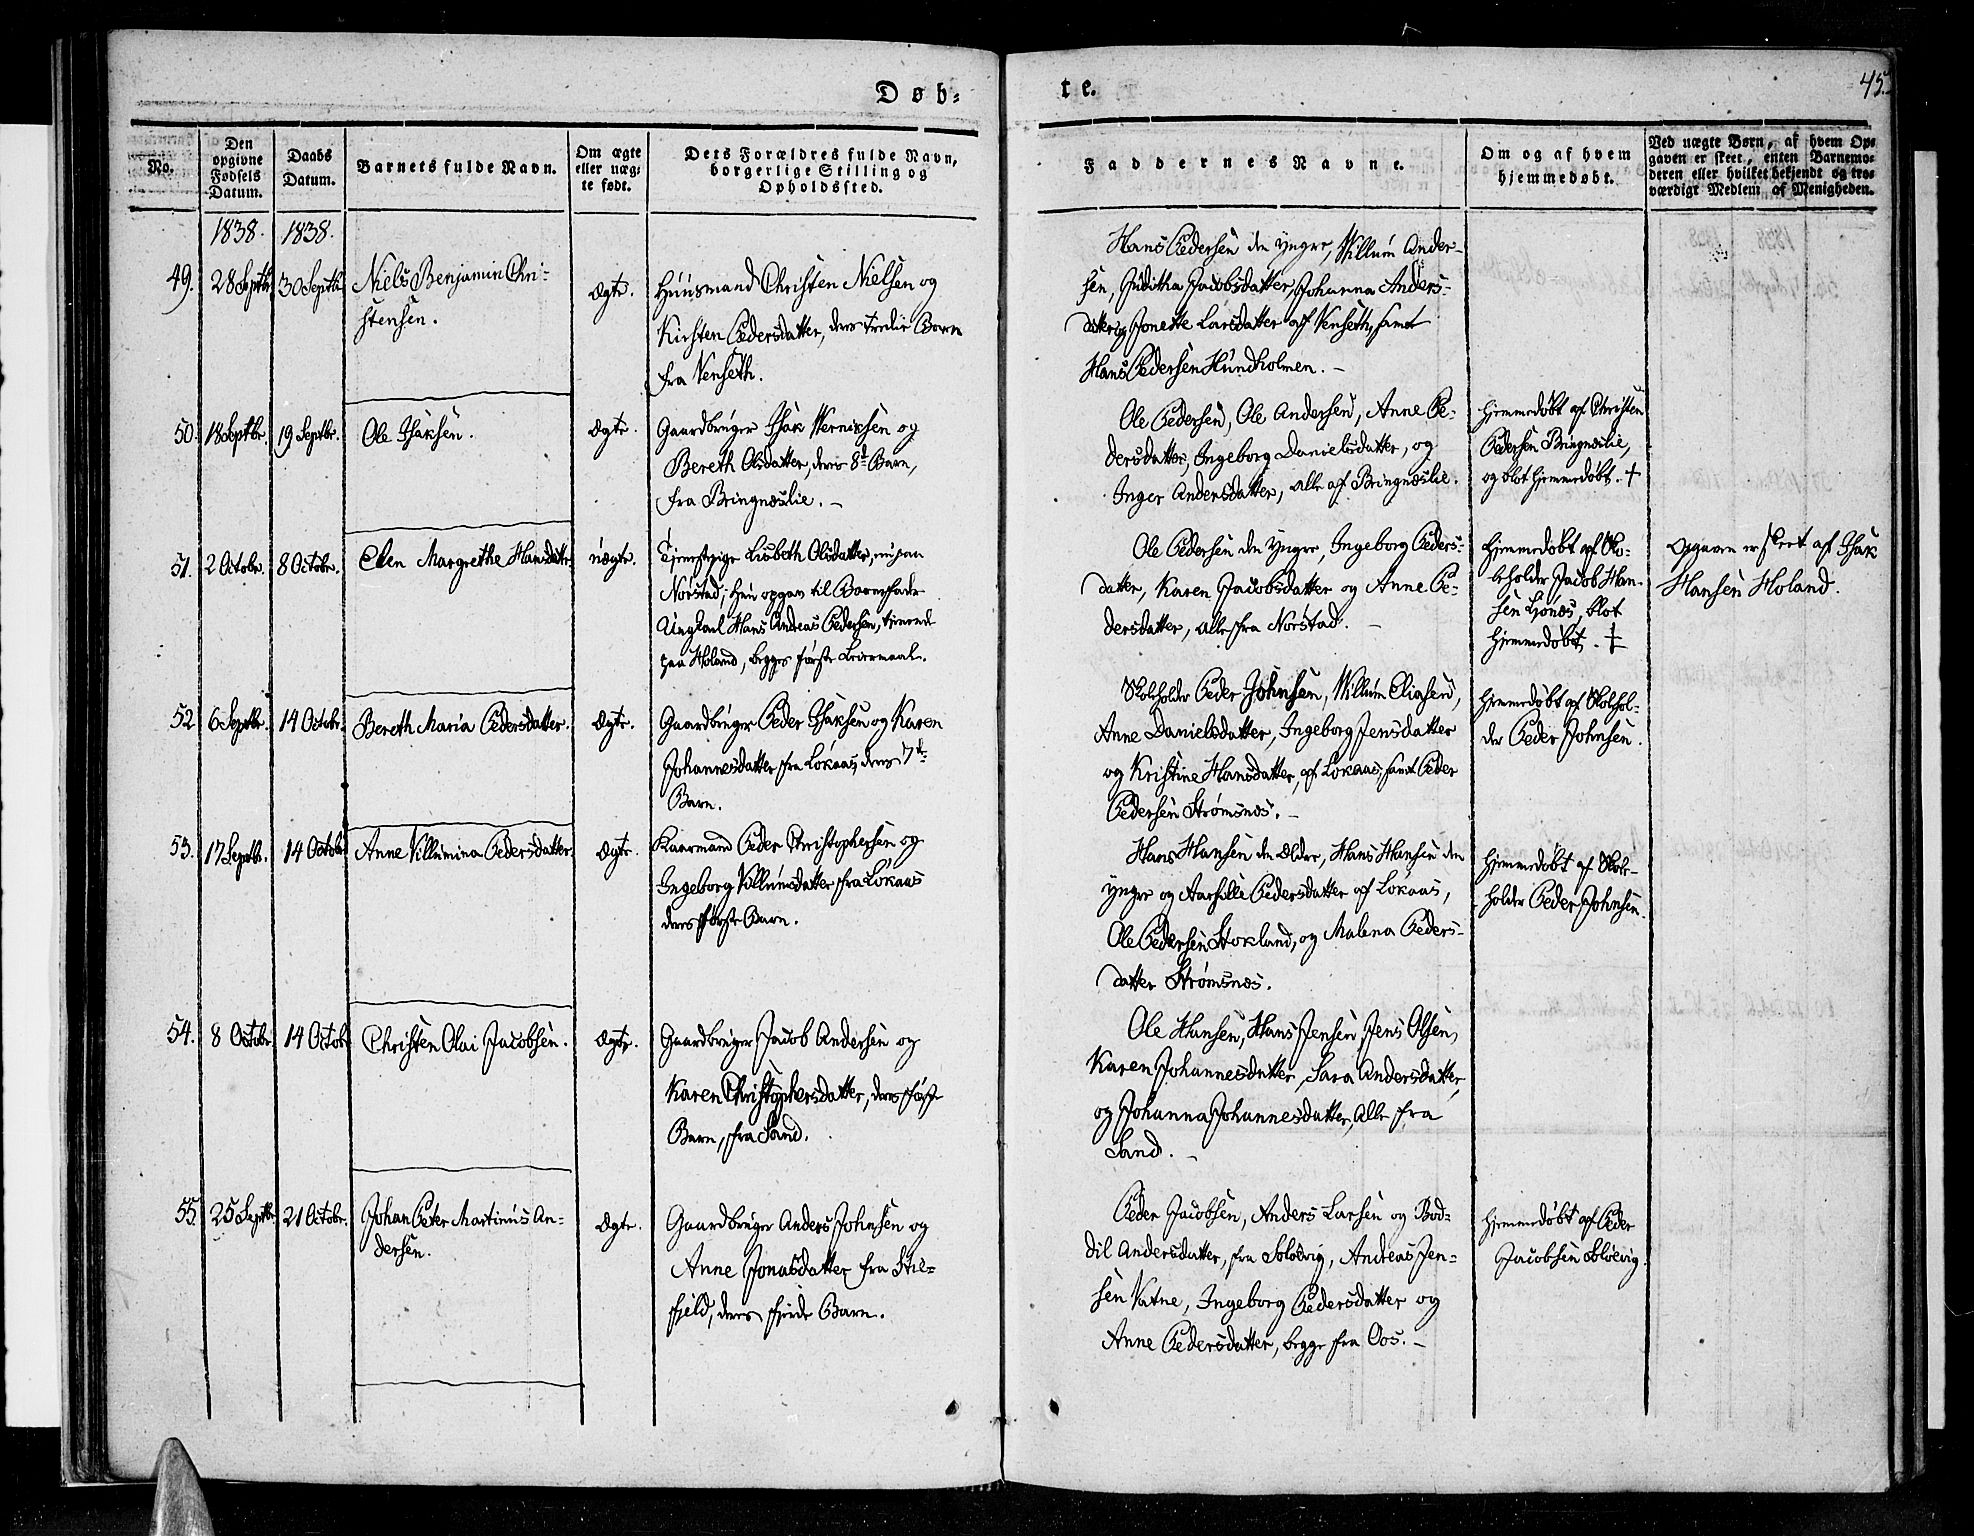 Døb-
te.
45.
No.
Den
opgivne
Fødsels
Datum.
Daabs
Datum.
Barnets fulde Navn.
Om ægte
eller uæg-
te født.
Dets Forældres fulde Navn,
borgerlige Stilling og
Opholdssted.
Faddernes Navne.
Om og af hvem
hjemmedøbt.
Ved uægte Børn, af hvem Op-
gaven er skeet, enten Barnemo-
deren eller hvilket bekjendt og tro-
værdigt Medlem af Menigheden.
1838. 1838.
49. 28 Septbr. 30 Septbr.
Niels Benjamin Chri-
stensen.
Ægte.
Huusmand Christen Nielsen og
Kirsten Pedersdatter, deres tredie Barn
fra Venseth.
Hans Pedersen den yngre, Willum Ander-
sen, Juditha Jacobsdatter, Johanna Anders-
datter og Jonette Larsdatter af Venseth, samt
Hans Pedersen Hundholmen. –
50. 18 Septbr. 19 Septbr.
Ole Isaksen.
Ægte.
Gaardbruger Isak Werniksen og
Bereth Olsdatter, deres 8de Barn,
fra Bringnæslie. –
Ole Pedersen, Ole Andersen, Anne Pe-
dersdatter, Ingeborg Danielsdatter, og
Inger Andersdatter, alle af Bringnæslie.
Hjemmedøbt af Christen
Pedersen Bringnæslie,
og blot hjemmedøbt. +
51. 2 Octobr. 8 Octobr.
Elen Margrethe Hansdatter
uægte.
Tjenestpige Lisbeth Olsdatter,
Norstad; Hun opgav til Barnefader
Ungkarl Hans Andreas Pedersen, tjenende
paa Høland, begges første Leiermaal.
Ole Pedersen den yngre, Ingeborg Peders-
datter, Karen Jacobsdatter og Anne Pe-
dersdatter, alle fra Norstad. –
Hjemmedøbt af Sko-
leholder Jacob Han-
sen, blot
hjemmedøbt. +
Opgaven er skeet af Isak
Hansen Høland.
52 6 Septbr. 14 Octobr.
Bereth Maria Pedersdatter.
Ægte.
Gaardbruger Peder Isaksen og Karen
Johannesdatter fra Løkaas, deres 7de
Barn.
Skoleholder Peder Johnsen, Willum Eliasen,
Anne Danielsdatter, Ingeborg Jensdatter
og Kristine Hansdatter, af Løkaas, samt Peder
Pedersen Strømsnæs. –
Hjemmedøbt af Skolehol-
der Peder Johnsen.
53. 17 Septbr. 14 Octobr
Anne Villumina Pedersdatter.
Ægte.
Kaarmand Peder Christophersen og
Ingeborg Villumsdatter fra Løkaas
deres første Barn.
Hans Hansen den ældre, Hans Hansen den
yngre og Aarsille Pedersdatter af Løkaas,
Ole Pedersen Storland, og Malena Peders-
datter Strømsnæs.
Hjemmedøbt af Skole-
holder Peder Johnsen.
54. 8 Octobr 14 Octobr
Christen Olai Jacobsen.
Ægte.
Gaardbruger Jacob Andersen og
Karen Christophersdatter, deres første
Barn, fra Sand.
Ole Hansen, Hans Jensen, Jens Olsen,
Karen Johannesdatter, Sara Andersdatter,
og Johanna Johannesdatter, alle fra
Sand. –
55. 25 Septbr. 21 Octobr.
Johan Peter Martinus An-
dersen.
Ægte.
Gaardbruger Anders Johnsen og
Anne Jonasdatter fra Stil-
fjeld, deres fjerde Barn.
Peder Jacobsen, Anders Larsen og Bod-
dil Andersdatter, fra Soløevig, Andreas Jen-
sen Vatne, Ingeborg Pedersdatter og
Anne Pedersdatter, begge fra Oos. –
Hjemmedøbt af Peder
Jacobsen Soløevig.